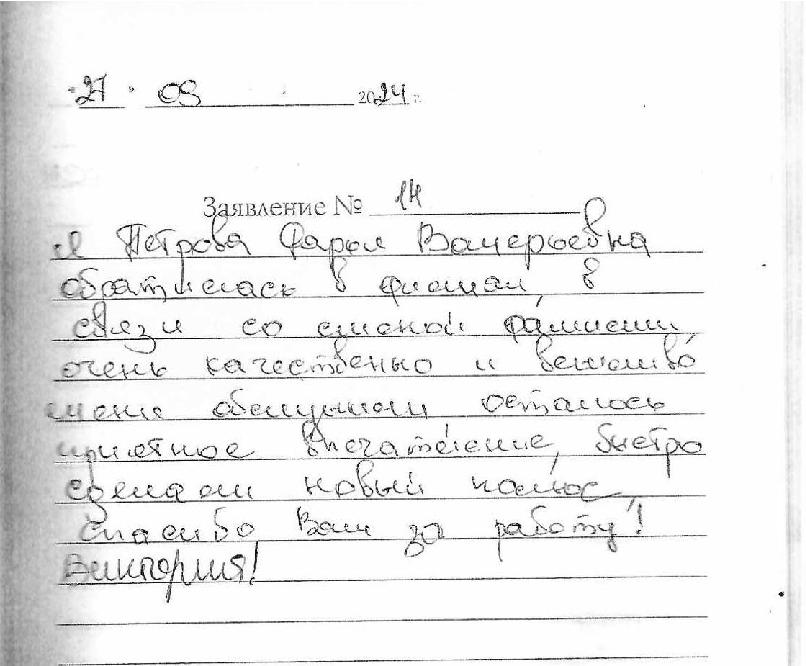 "27" 09 2024 г.
Заявление № 14
Я Петрова Дарья Валерьевна
обратилась в филиал, в
связи со сменой фамилии,
очень качественно и вежливо
меня обслужили осталось
приятное впечатление, быстро
сделали новый полюс,
спасибо Вам за работу!
Виктория!